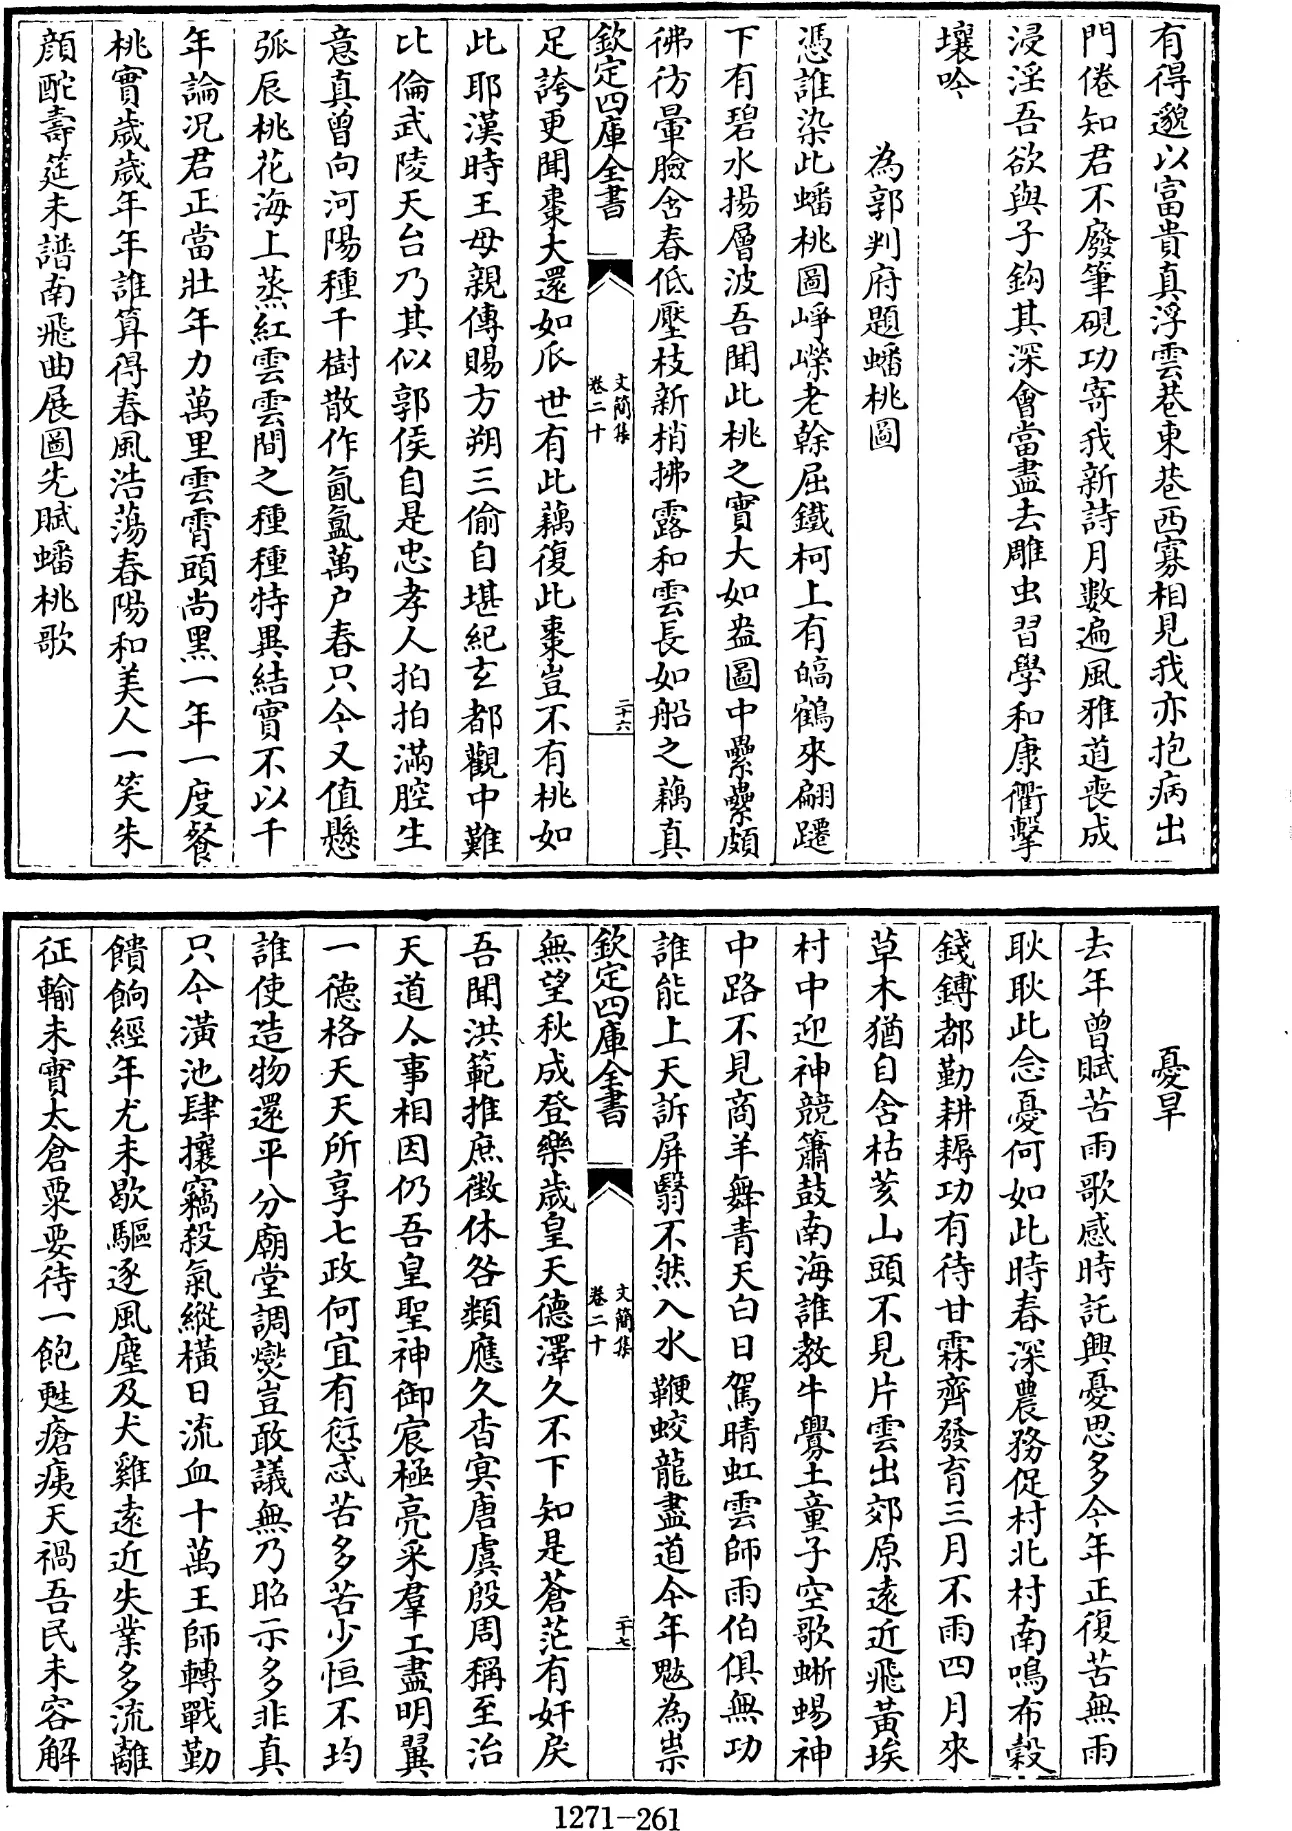 有得邈以富貴真浮雲巷東巷西寡相見我亦抱病出
門倦知君不廢筆硯功寄我新詩月數遍風雅道喪成
浸淫吾欲與子鈎其深會當盡去雕虫習學和康衢擊
壤吟
為郭判府題蟠桃圖
憑誰染此蟠桃圖崢嶸老幹屈鐵柯上有皜鶴來翩躚
下有碧水揚層波吾聞此桃之實大如盎圖中纍纍頗
彿彷暈臉含春低壓枝新梢拂露和雲長如船之藕真
欽定四庫全書
文簡集
卷二十
二十六
足誇更聞棗大還如瓜世有此藕復此棗豈不有桃如
此耶漢時王母親傳賜方朔三偷自堪紀玄都觀中難
比倫武陵天台乃其似郭侯自是忠孝人拍拍滿腔生
意真曾向河陽種千樹散作氤氳萬户春只今又值懸
弧辰桃花海上蒸紅雲雲間之種種特異結實不以千
年論况君正當壯年力萬里雲霄頭尚黑一年一度餐
桃實歲歲年年誰算得春風浩蕩春陽和美人一笑朱
顔酡壽筵未譜南飛曲展圖先賦蟠桃歌
憂旱
去年曾賦苦雨歌感時託興憂思多今年正復苦無雨
耿耿此念憂何如此時春深農務促村北村南鳴布穀
錢鎛都勤耕耨功有待甘霖齊發育三月不雨四月來
草木猶自含枯荄山頭不見片雲出郊原遠近飛黃埃
村中迎神競簫鼓南海誰教牛釁土童子空歌蜥蜴神
中路不見商羊舞青天白日駕晴虹雲師雨伯俱無功
誰能上天訴屏翳不然入水鞭蛟龍盡道今年魃為祟
欽定四庫全書
文簡集
卷二十
二十七
無望秋成登樂歲皇天德澤久不下知是蒼茫有奸戾
吾聞洪範推庶徵休咎類應久杳冥唐虞殷周稱至治
天道人事相因仍吾皇聖神御宸極亮采羣工盡明翼
一德格天天所享七政何宜有愆忒苦多苦少恒不均
誰使造物還平分廟堂調燮豈敢議無乃昭示多非真
只今潢池肆攘竊殺氣縱橫日流血十萬王師轉戰勤
饋餉經年尤未歇驅逐風塵及犬雞遠近失業多流離
征輸未實太倉粟要待一飽甦瘡痍天禍吾民未容解
1271-261